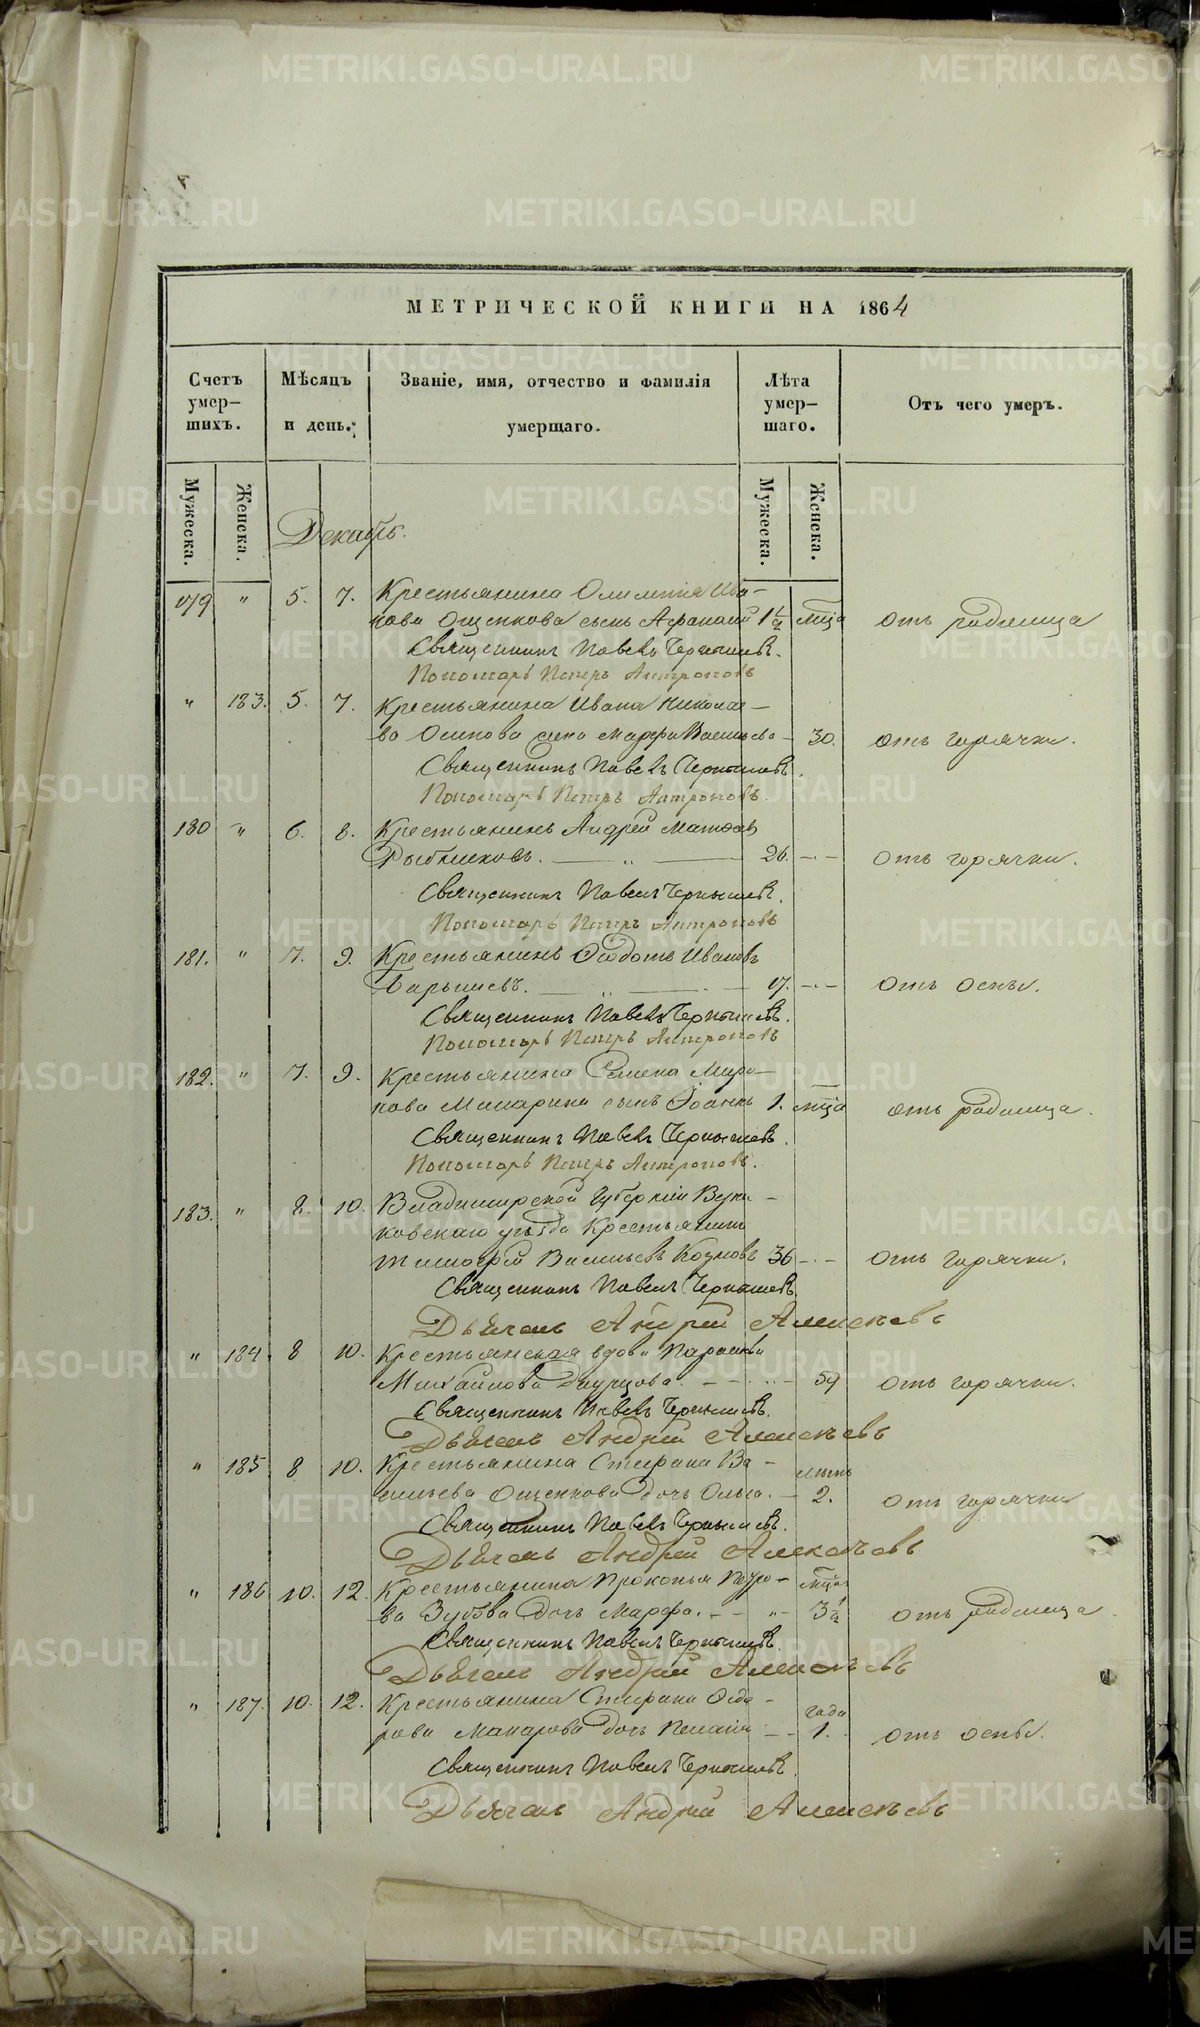 МЕТРИЧЕСКОЙ КНИГИ НА 1864
Счетъ умер– шихъ.
Мѣсяцъ и день.
Званіе, имя, отчество и фамилія умерщаго.
Лѣта умер– шаго.
Отъ чего умеръ.
Мужеска.
Женска.
Мужеска.
Женска.
Декабрь.
179 " 5. 7. Крестьянина Олимпія Ива–
нова Ощепкова сынъ Афанасій 1½ мца отъ родимца
Священникъ Павелъ Чернышевъ.
Пономарь Петръ Антроповъ
" 183. 5. 7. Крестьянина Ивана Николае–
ва Осипова жена Марфа Васильева – 30. отъ горячки.
Священникъ Павелъ Чернышевъ.
Пономарь Петръ Антроповъ.
180 " 6. 8. Крестьянинъ Андрей Матвѣевъ
Рыбниковъ. — " — 26. – отъ горячки.
Священникъ Павелъ Чернышевъ.
Пономарь Петръ Антроповъ
181. " 7. 9. Крестьянинъ Ѳеодотъ Ивановъ
— 17. – отъ оспы.
Священникъ Павелъ Чернышевъ.
Пономарь Петръ Антроповъ
182. " 7. 9. Крестьянина Семена Миро–
нова сынъ Іоаннъ 1. мца отъ родимца.
Священникъ Павелъ Чернышевъ.
Пономарь Петръ Антроповъ.
183. " 8. 10. Владимирской Губерніи Вязни–
ковскаго уѣзда Крестьянинъ
Тимофей Васильевъ 36 – отъ горячки.
Священникъ Павелъ Чернышевъ.
Дьячекъ Андрей Алексѣевъ
" 184. 8 10. Крестьянская вдова Параскева
Михайлова – 59 отъ горячки.
Священникъ Павелъ Чернышевъ.
Дьячекъ Андрей Алексѣевъ
" 185 8 10. Крестьянина Стефана Ва– лѣтъ
сильева Ощепкова дочь Ольга. – 2. отъ горячки
Священникъ Павелъ Чернышевъ.
Дьячекъ Андрей Алексѣевъ
" 186 10. 12. Крестьянина Прокопья мца
Зубова дочь Марфа. – " – 3½ отъ родимца
Священникъ Павелъ Чернышевъ.
Дьячекъ Андрей Алексѣевъ
" 187. 10. 12. Крестьянина Стефана Ѳедо– года
рова Макарова дочь Пелагія – 1. отъ оспы.
Священникъ Павелъ Чернышевъ.
Дьячекъ Андрей Алексѣевъ
METRIKI.GASO-URAL.RU